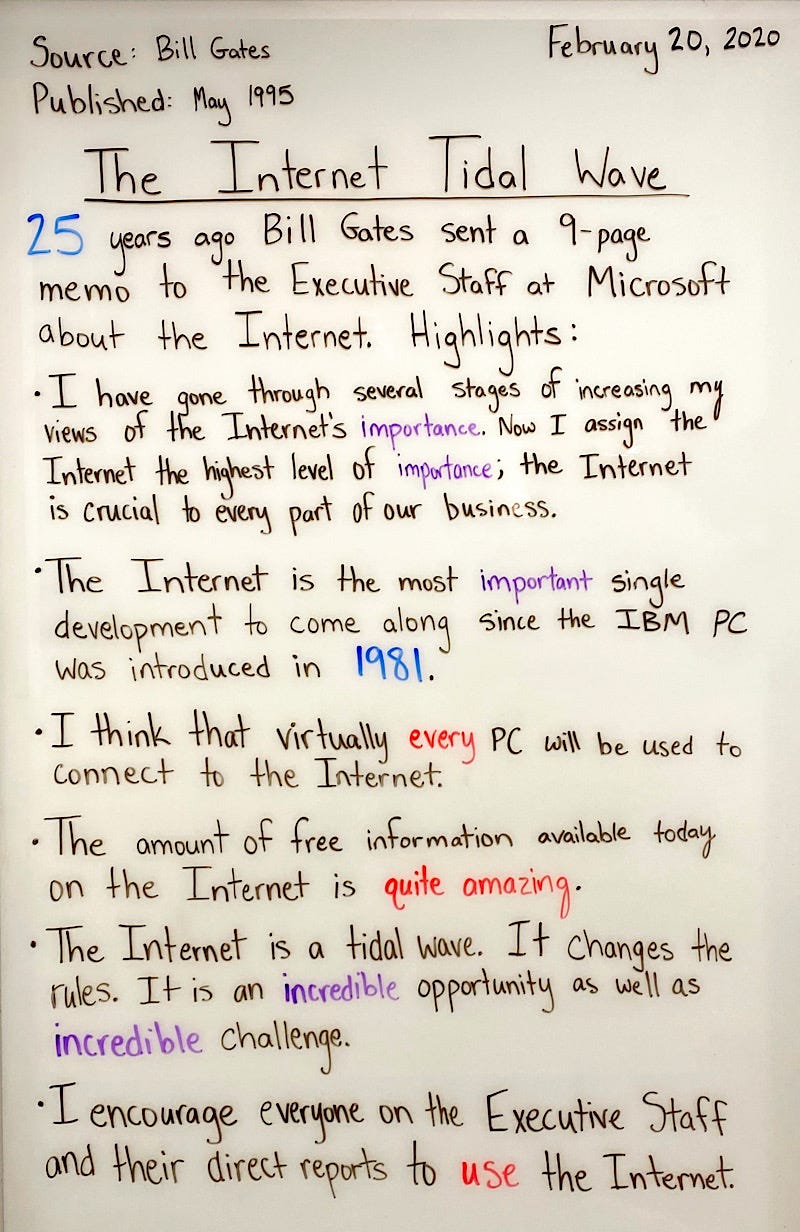 Source: Bill Gates
February 20, 2020
Published: May 1995
The Internet Tidal Wave
25 years ago Bill Gates sent a 9-page
memo to the Executive Staff at Microsoft
about the Internet. Highlights:
• I have gone through several stages of increasing my
views of the Internet's importance. Now I assign the
Internet the highest level of importance; the Internet
is crucial to every part of our business.
• The Internet is the most important single
development to come along since the IBM PC
was introduced in 1981.
• I think that virtually every PC will be used to
connect to the Internet.
• The amount of free information available today
on the Internet is quite amazing.
• The Internet is a tidal wave. It changes the
rules. It is an incredible opportunity as well as
incredible challenge.
• I encourage everyone on the Executive Staff
and their direct reports to use the Internet.